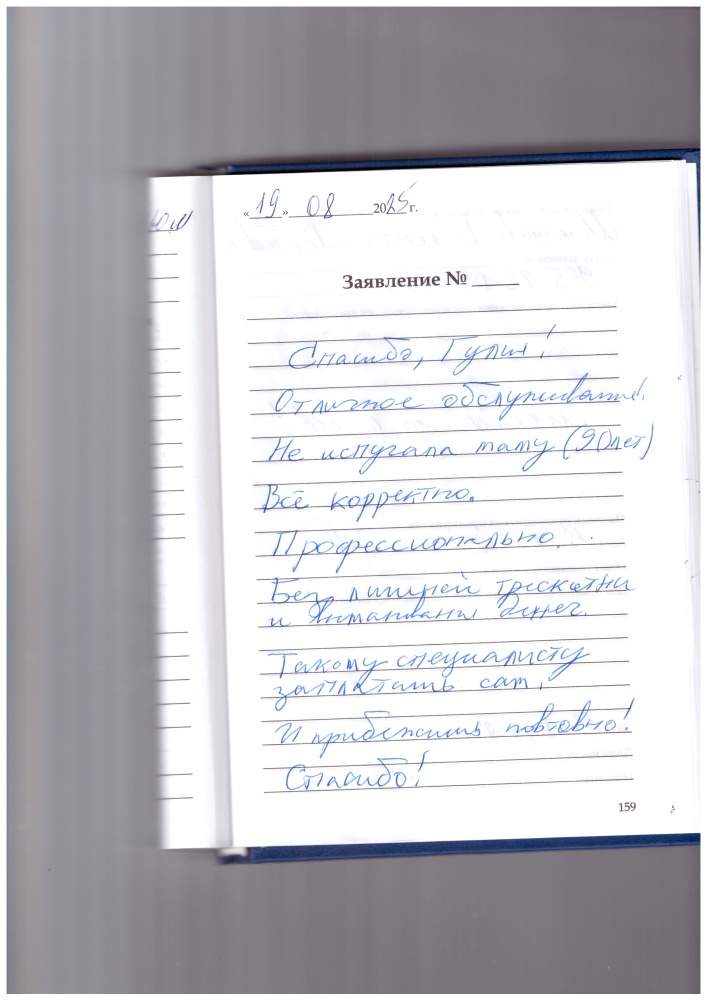 «19» 08 2025 г.
Ю.М
Заявление № _____
Спасибо, Гулия!
Отличное обслуживание!
Не испугала маму (90 лет)
Всё корректно.
Профессионально.
Без лишней трескотни
и денег.
Такому специалисту
заплатишь сам.
И прибежишь повтовно!
Спасибо!
159